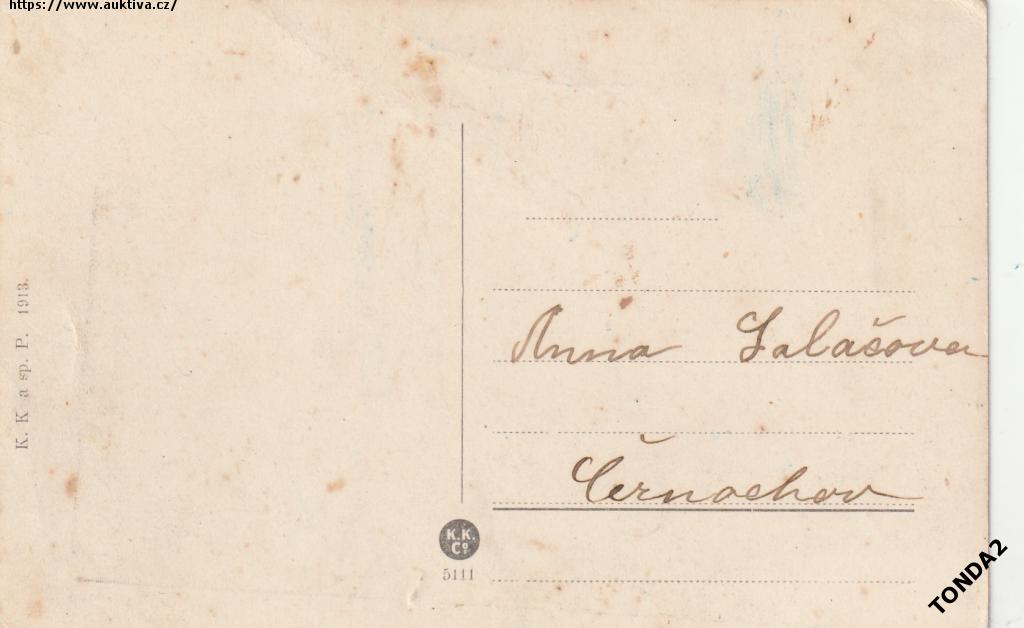 https://www.auktiva.cz/
K. K a sp. P. 1913.
Anna Salášova
Černochov
K.K.
Co.
5111
TONDA2